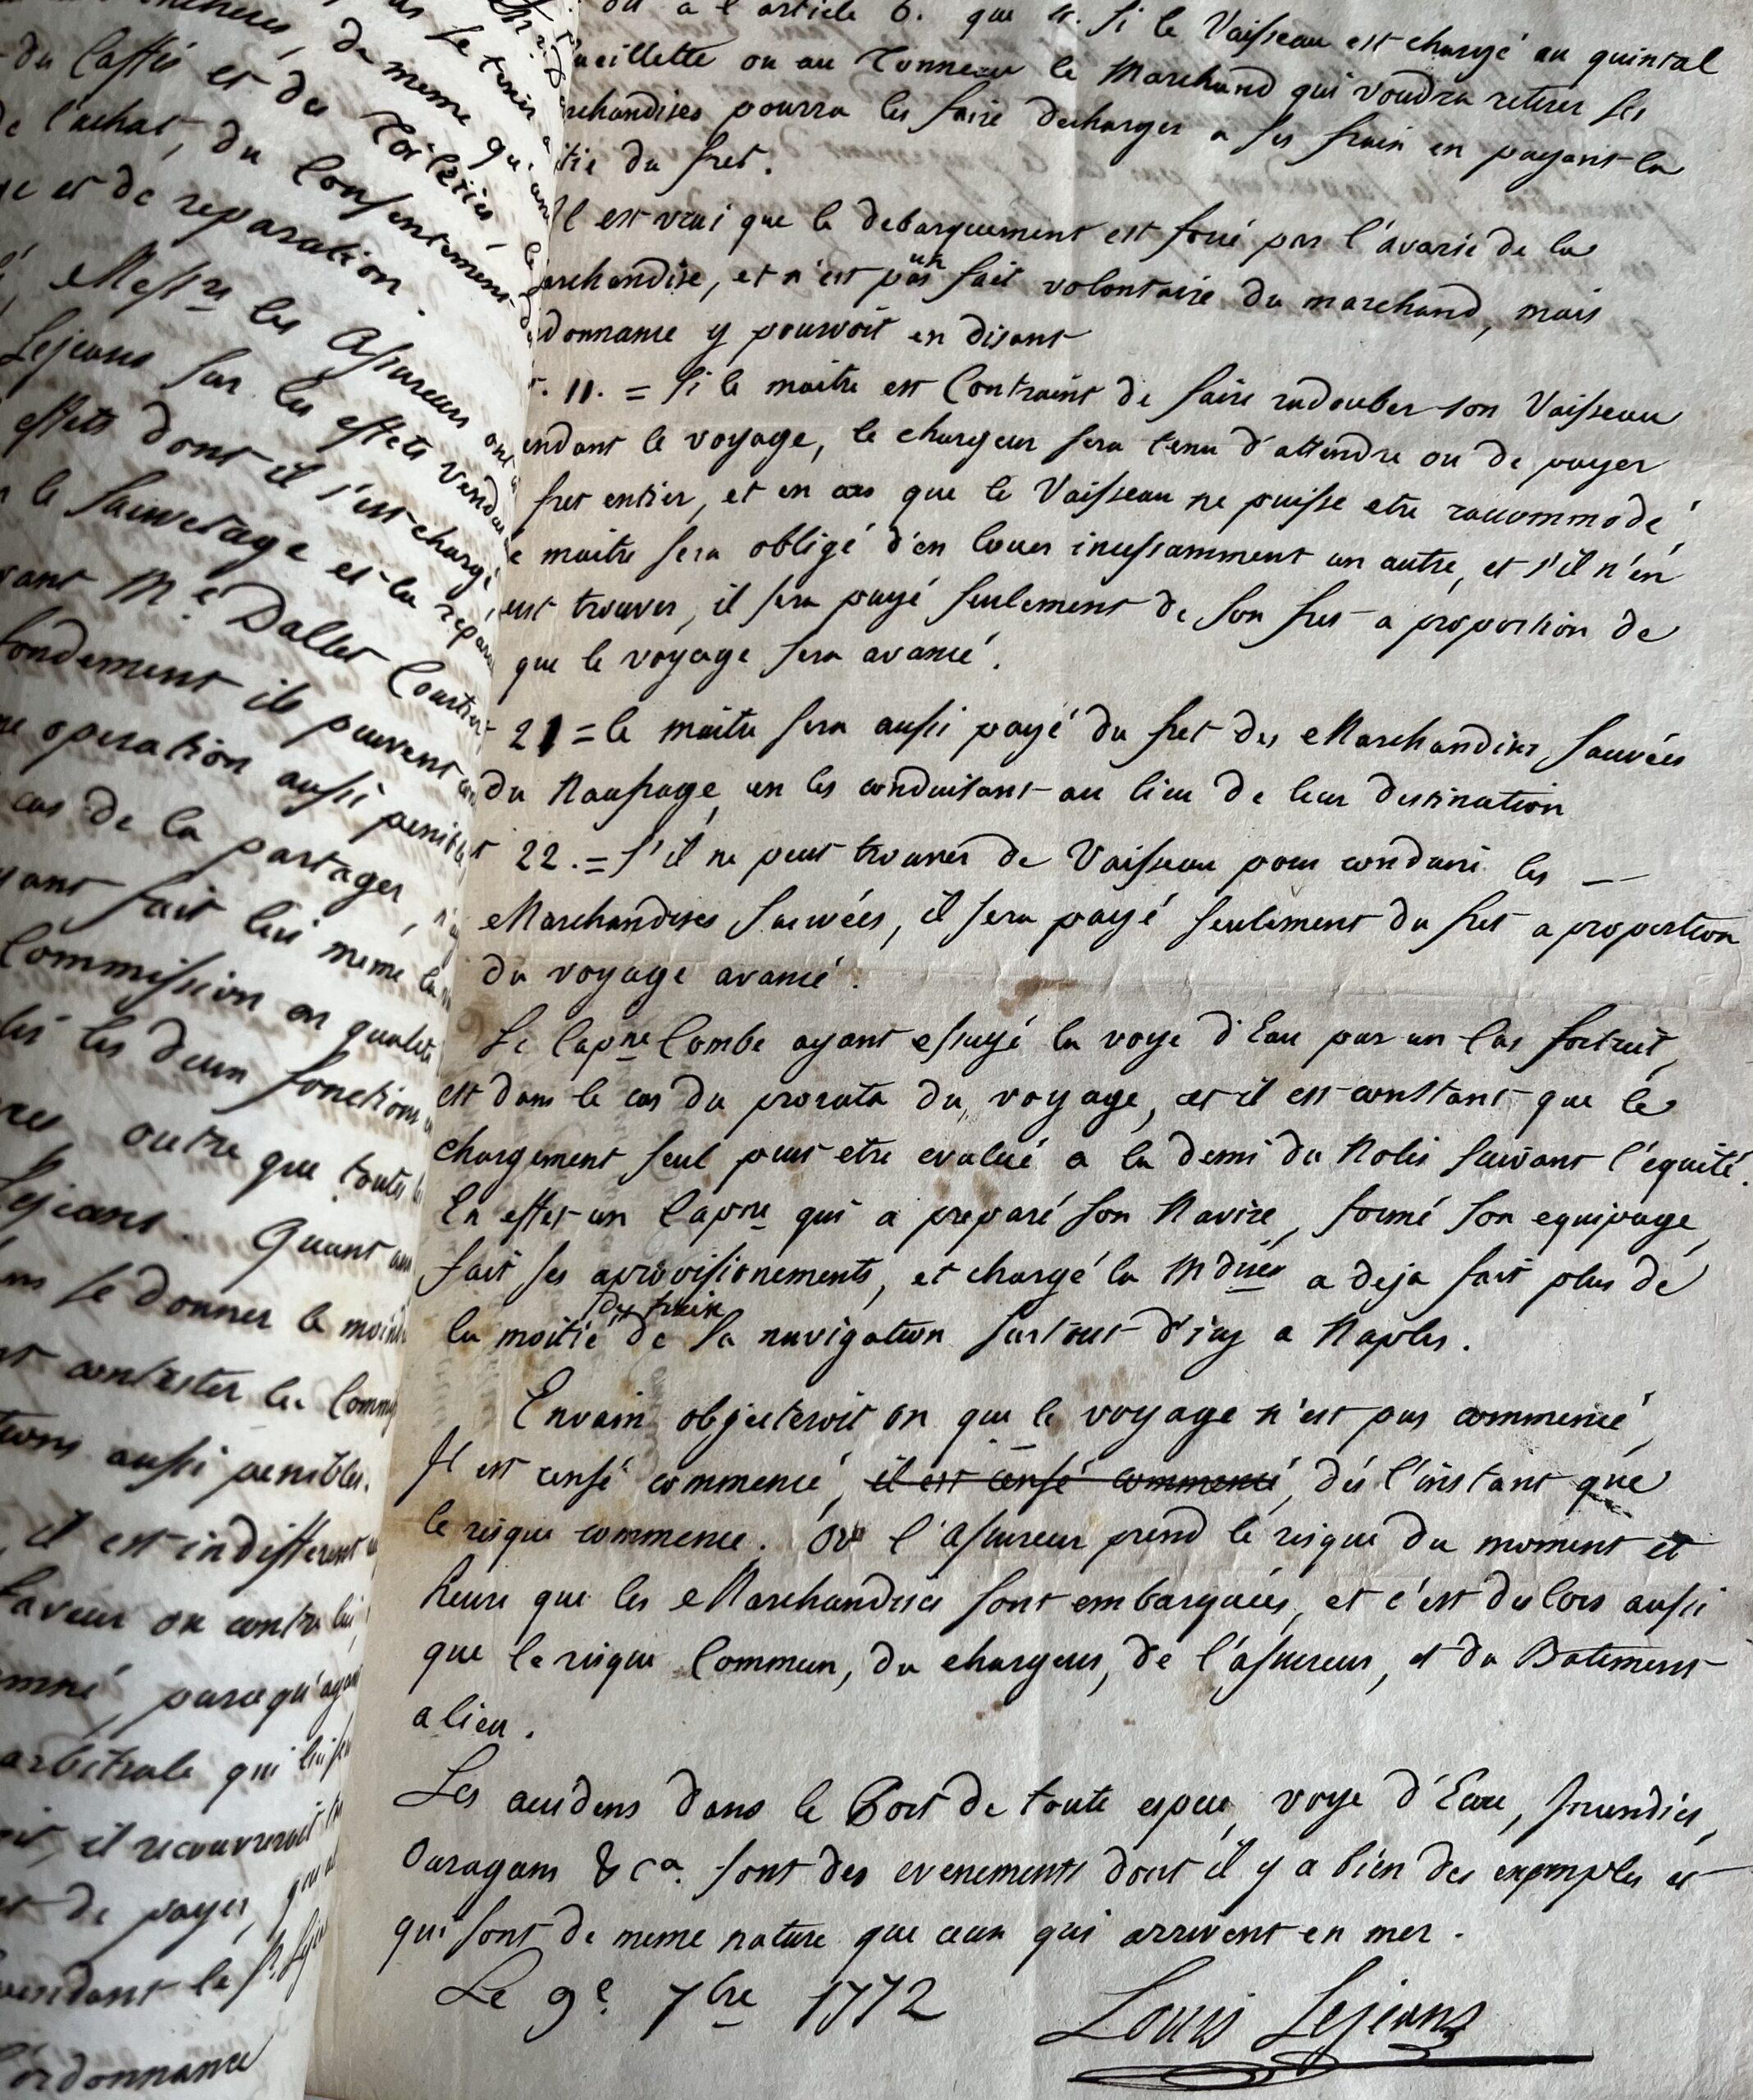 du Caffé et du
de l'achat, du Consentement
et de reparation.
Messrs les Assureurs ont
Lejeans sur les effets vendus
effets dont il s'est chargé
le Sauvetage et la repara
vant Me. Dallet Courtier
fondement ils peuvent
operation aussi penible
cas de la partager,
yant fait lui meme la
Commission en qualité
les deux fonctions
outre que toutes
Lejeans. Quant aux
se donner le moind
contester la Comm
tions aussi penibles.
il est indifferent
faveur ou contre lui,
parcequ'ayant
arbitrale qui
il recouvreroit
de payer,
pendant le Sr. Leje
l'ordonnance
ou a l'article 6. que si le Vaisseau est chargé au quintal
ueillette ou au Tonneau le Marchand qui voudra retirer ses
rchandises pourra les faire decharger a ses frais en payant la
itié du fret.
Il est vrai que le debarquement est forcé par l'avarie de la
archandise, et n'est pas un fait volontaire du marchand, mais
donnance y pourvoit en disant
t. 11. = Si le maitre est Contraint de faire radouber son Vaisseau
endant le voyage, le chargeur sera tenu d'attendre ou de payer
fret entier, et en cas que le Vaisseau ne puisse etre racommodé,
e maitre sera obligé d'en louer incessamment un autre, et s'il n'en
eut trouver, il sera payé seulement de son fret a proportion de
que le voyage sera avancé.
21 = le maitre sera aussi payé du fret des Marchandises sauvées
du Naufrage en les conduisant au lieu de leur destination
t 22. = S'il ne peut trouver de Vaisseau pour conduire les —
Marchandises sauvées, il sera payé seulement du fret a proportion
du voyage avancé.
Le Capne Combe ayant essuyé la voye d'Eau par un Cas fortuit,
est dans le cas du prorata du voyage, et il est constant que le
chargement seul peut etre evalué a la demi du Nolis suivant l'équité.
En effet un Capne qui a preparé son Navire, formé son equipage,
fait ses aprovisionements, et chargé la Mdise a deja fait plus de
la moitié du train de sa navigation surtout d'icy a Naples.
Envain objecteroit on que le voyage n'est pas commencé,
Il est censé commencé, il est censé commencé, dés l'instant que
le risque commence. Or l'assureur prend le risque du moment et
heure que les Marchandises sont embarquées, et c'est des lors aussi
que le risque Commun, du chargeur, de l'assureur, et du Batiment
a lieu.
Les accidens dans le Port de toute espece, voye d'Eau, Incendies,
Ouragans & ca. sont des evenements dont il y a bien des exemples et
qui sont de meme nature que ceux qui arrivent en mer.
Le 9e. 7bre 1772
Louis Lejeans